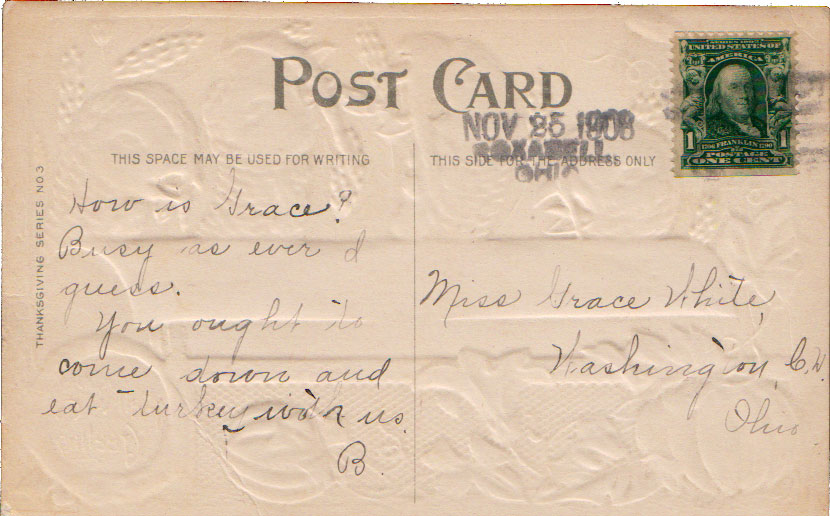 POST CARD
NOV 25 1908
ROXABELL
OHIO
SERIES 1902
UNITED STATES OF
AMERICA
1 1706 FRANKLIN 1790 1
POSTAGE
ONE CENT
THIS SPACE MAY BE USED FOR WRITING
THIS SIDE FOR THE ADDRESS ONLY
THANKSGIVING SERIES NO 3
How is Grace?
Busy as ever I
guess.
You ought to
come down and
eat turkey with us.
B.
Miss Grace White,
Washington, C.H.
Ohio